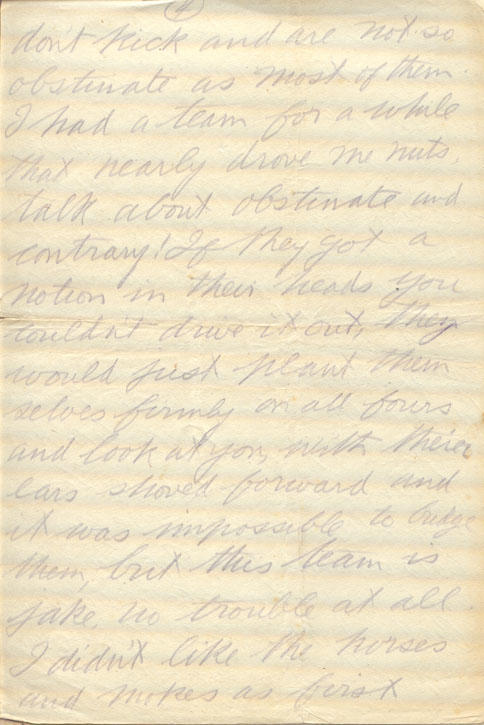 4
don't kick and are not so
obstinate as most of them.
I had a team for a while
that nearly drove me nuts,
talk about obstinate and
contrary! If they got a
notion in their heads you
couldn't drive it out, they
would just plant them
selves firmly on all fours
and look at you with their
ears shoved forward and
it was impossible to budge
them, but this team is
jake, no trouble at all.
I didn't like the horses
and mokes as first